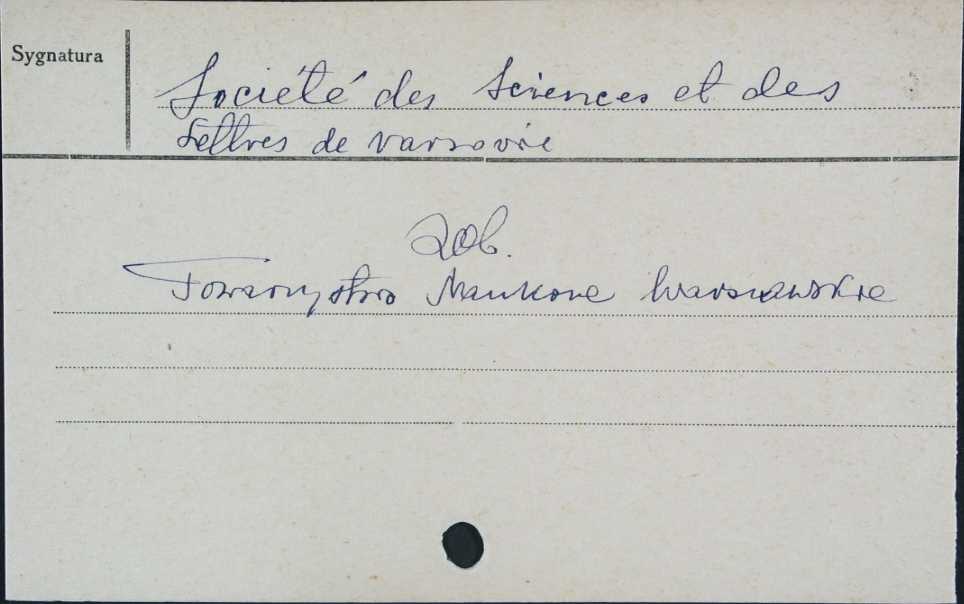 Sygnatura
Société des Sciences et des
Lettres de Varsovie
Zob.
Towarzystwo Naukowe Warszawskie